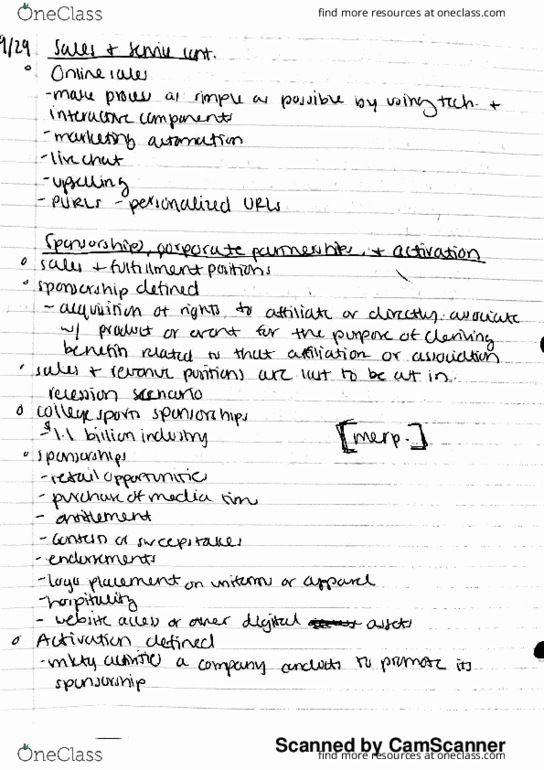 OneClass
find more resources at oneclass.com
9/29 Sales + service cont.
Online sales
- make process as simple as possible by using tech. +
interactive components
- marketing automation
- live chat
- upselling
- PURLs - personalized URLs
Sponsorships, corporate partnerships, + activation
sales + fulfillment positions
sponsorship defined
- acquisition of rights to affiliate or directly associate
w/ product or event for the purpose of deriving
benefits related to that affiliation or association
sales + revenue positions are last to be cut in
recession scenario
college sports sponsorships
- $1.1 billion industry
[merp.]
sponsorships
- retail opportunities
- purchase of media time
- entitlement
- contests or sweepstakes
- endorsements
- logo placement on uniforms or apparel
- hospitality
- website access or other digital assets
Activation defined
- mktg activities a company conducts to promote its
sponsorship
Scanned by CamScanner
OneClass
find more resources at oneclass.com